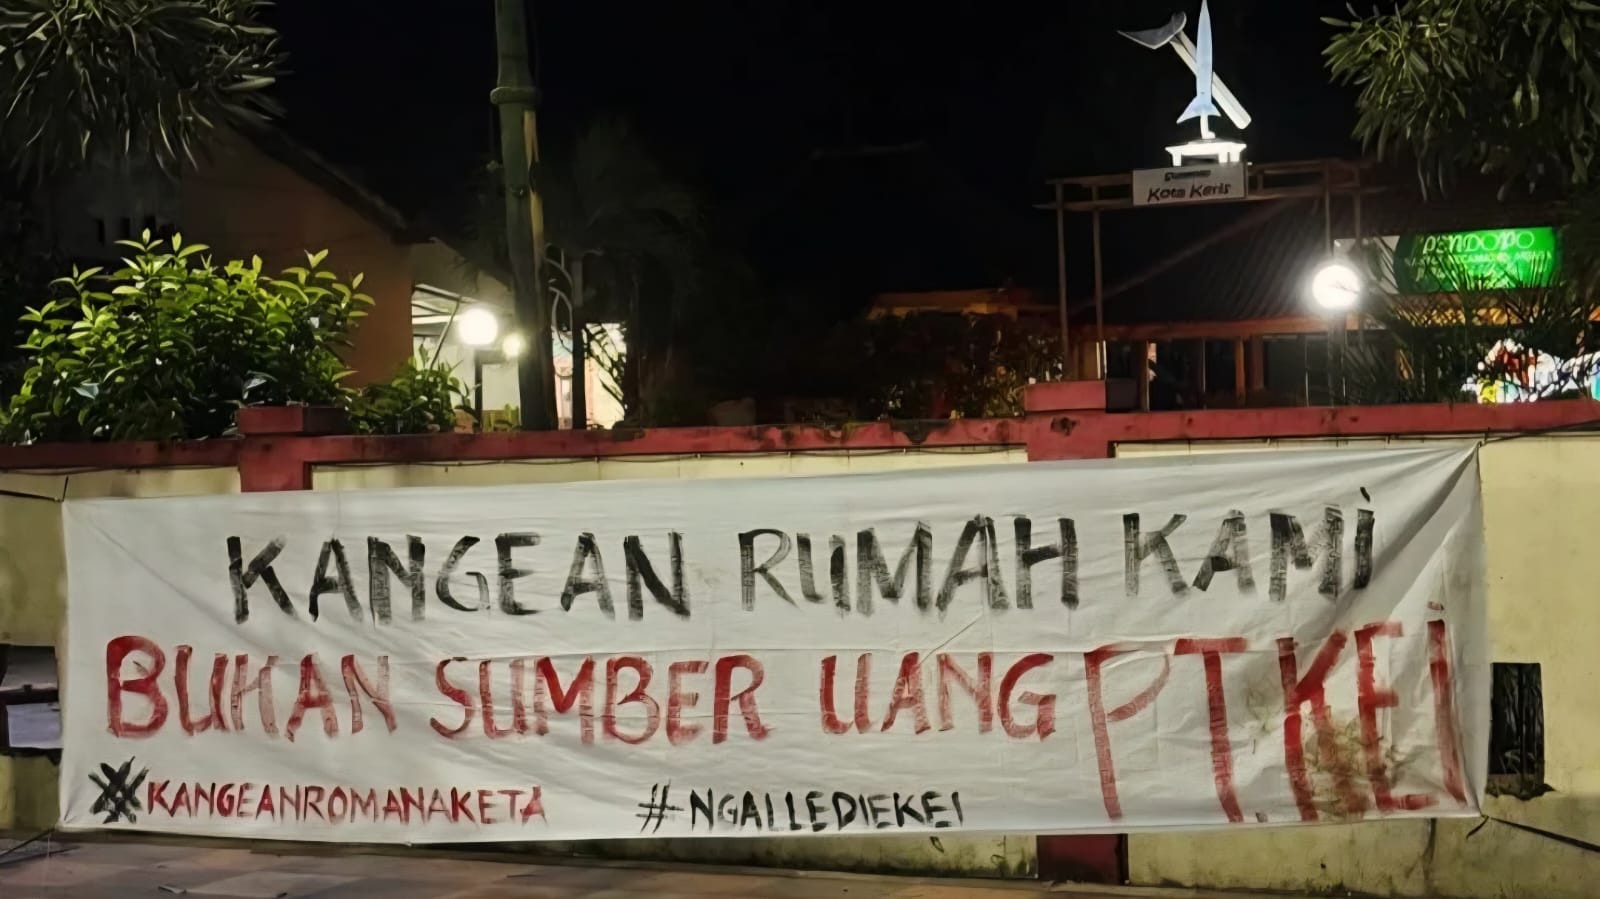 Kota Keris
PENDOPO
KANGEAN RUMAH KAMI
BUKAN SUMBER UANG PT.KEI
#KANGEANROMANAKETA
#NGALLEDIEKEI